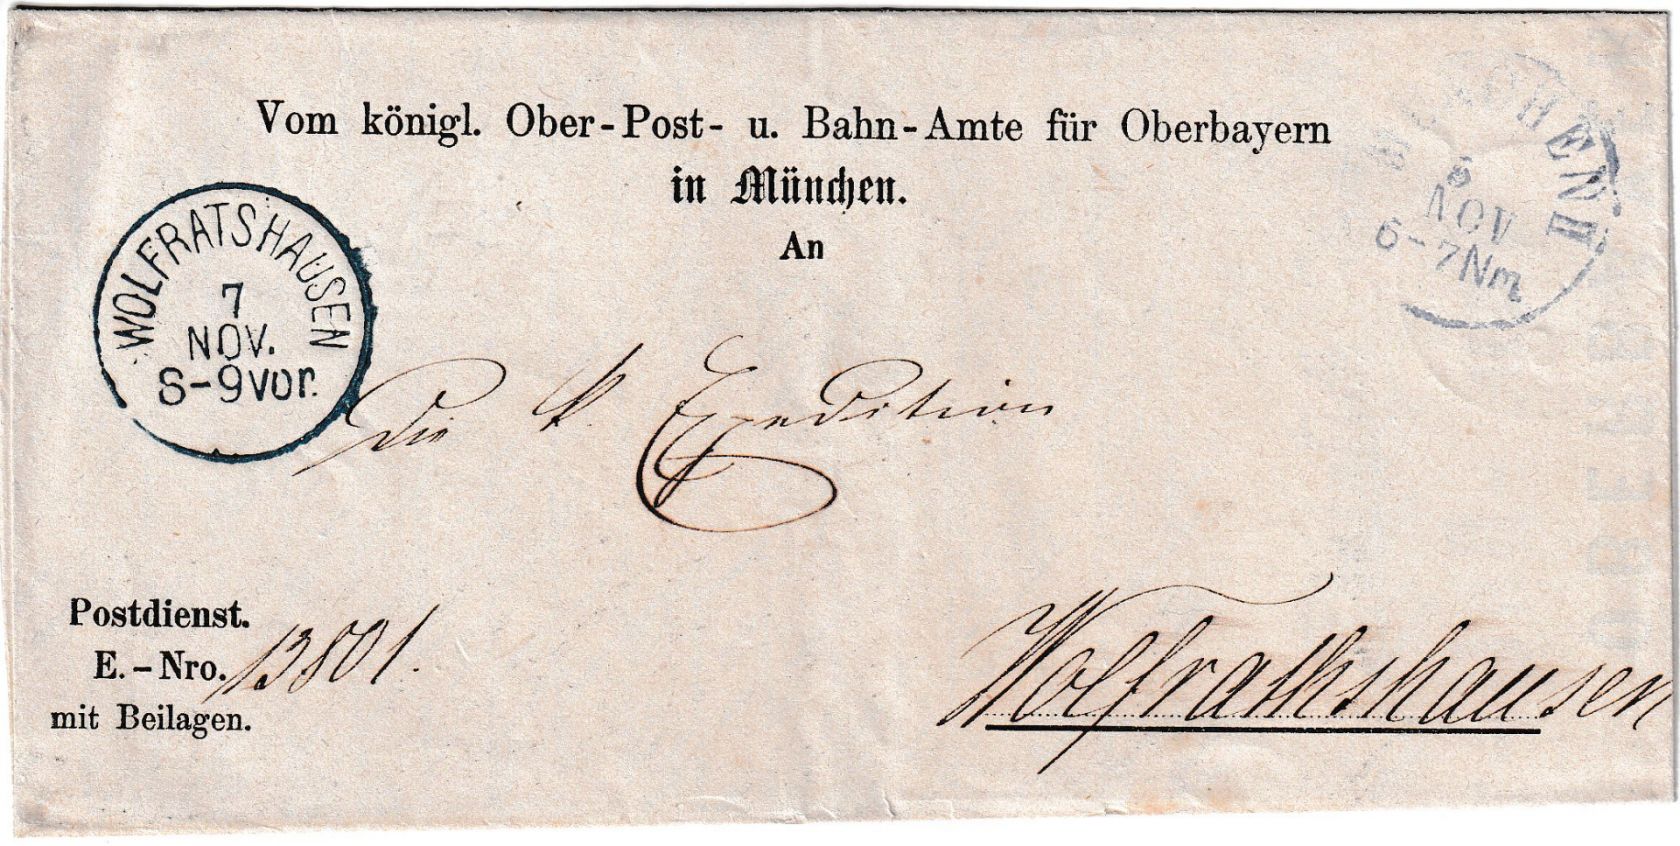 Vom königl. Ober-Post- u. Bahn-Amte für Oberbayern
in München.
An
WOLFRATSHAUSEN
7
NOV.
8-9 vor.
MÜNCHEN II
6
NOV
6-7 Nm
Die k Expedition
Postdienst.
E.-Nro. 13801.
mit Beilagen.
Wolfrathshausen